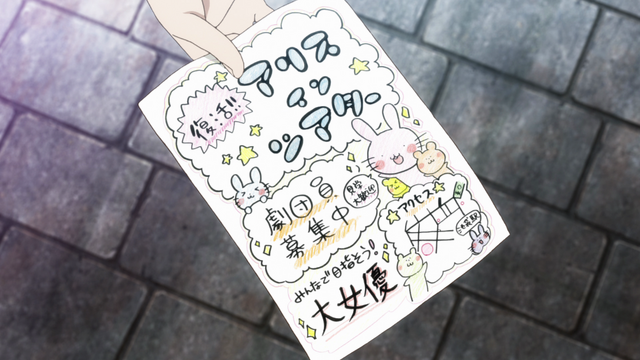 復活!!
アリス
イン
シアター
劇団員
募集中
見学
大歓迎
アクセス
みんなで目指そう!
大女優